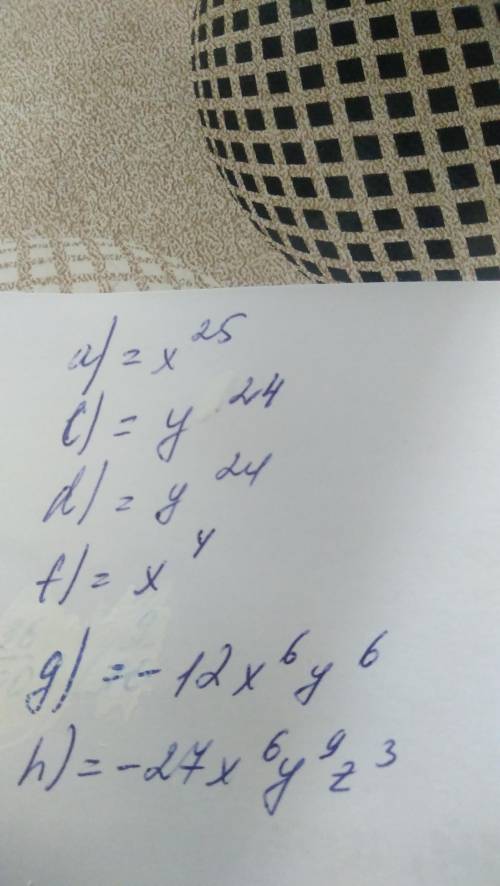 a) = x^25
c) = y^24
d) = y^24
f) = x^4
g) = -12x^6y^6
h) = -27x^6y^9z^3